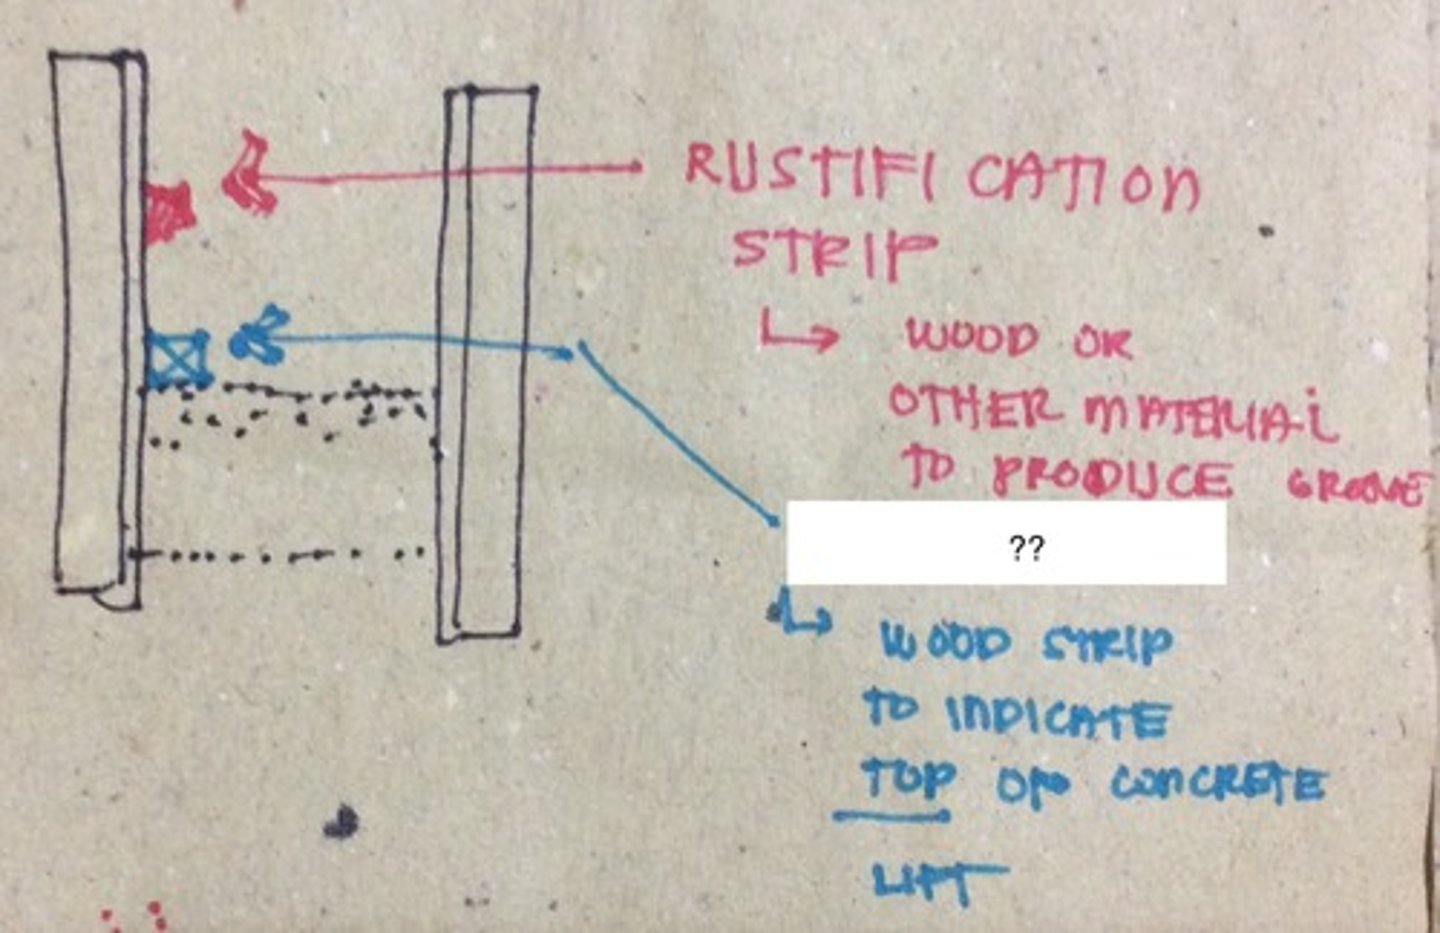 RUSTIFICATION
STRIP
WOOD OR
OTHER MATERIAL
TO PRODUCE GROOVE
??
WOOD STRIP
TO INDICATE
TOP OF CONCRETE
LIFT